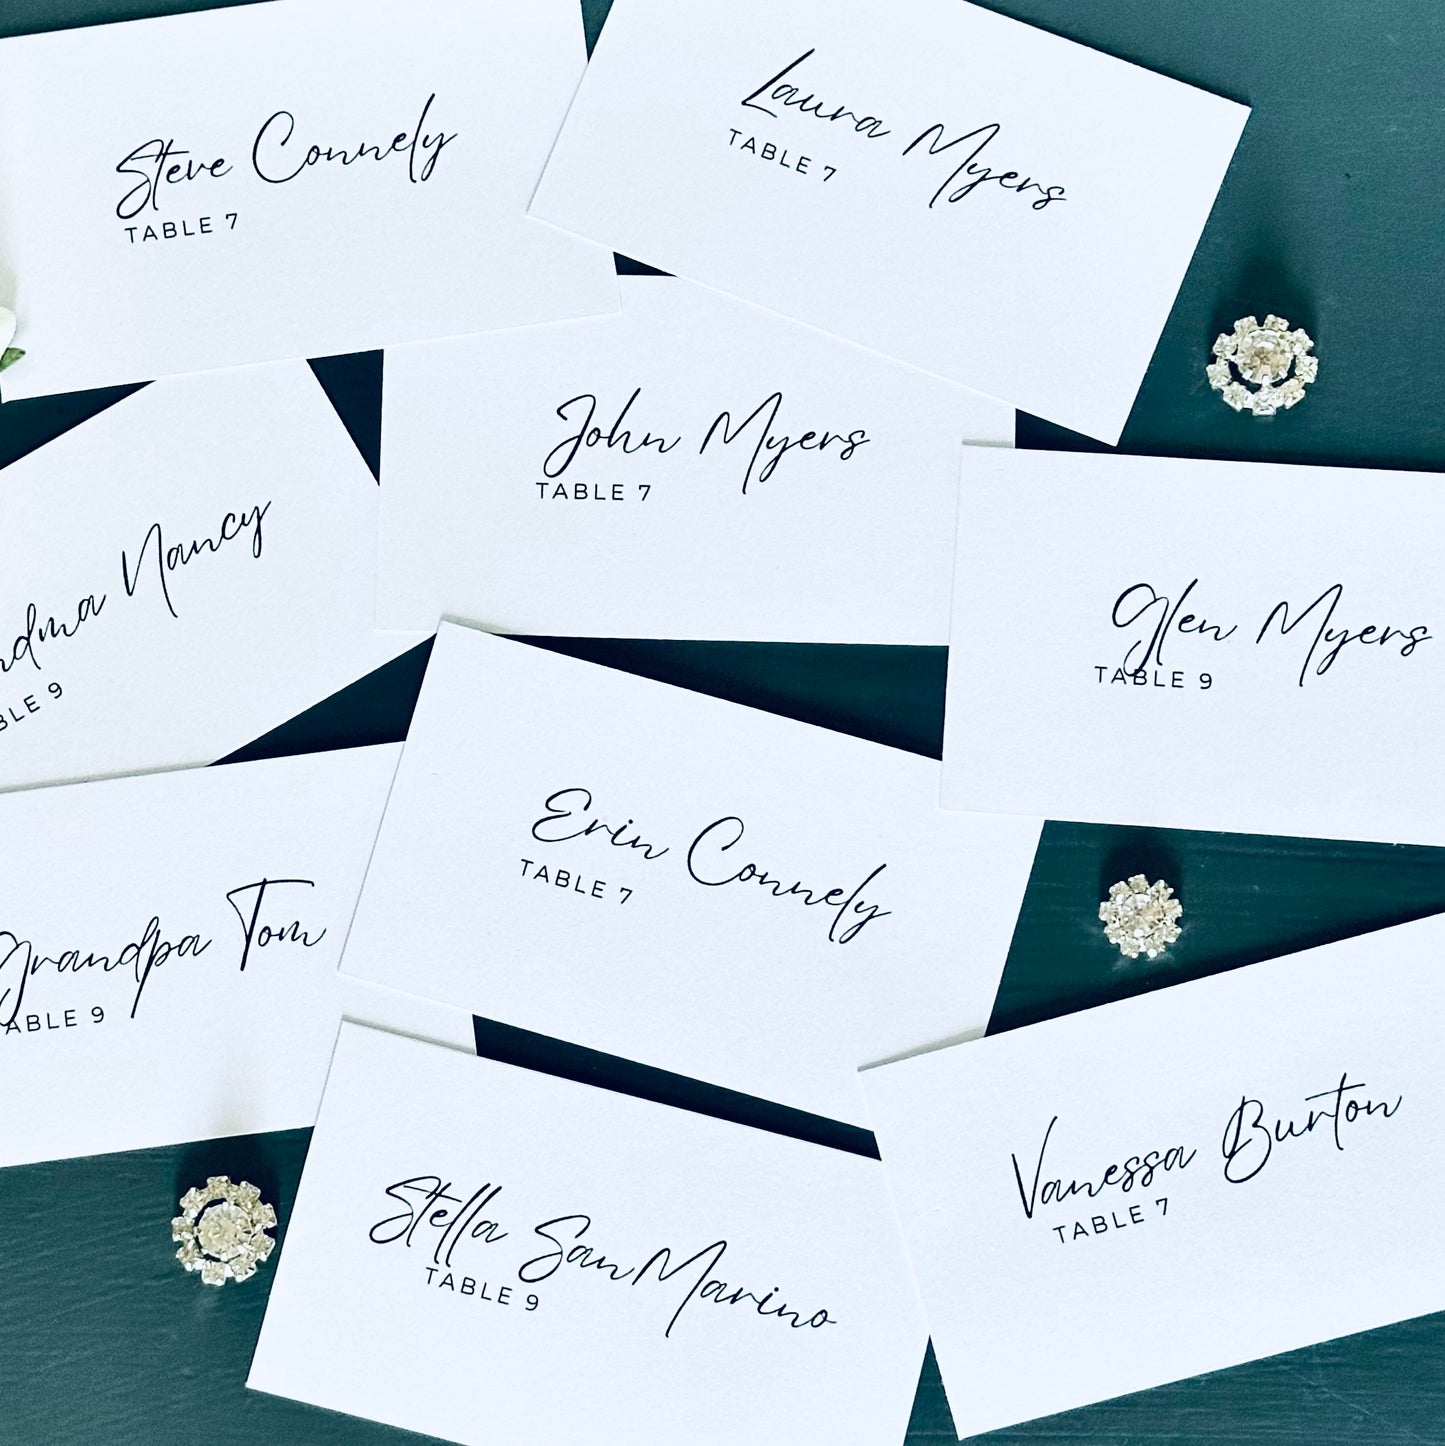 Steve Connely
TABLE 7
Laura Myers
TABLE 7
John Myers
TABLE 7
ndma Nancy
BLE 9
Glen Myers
TABLE 9
Erin Connely
TABLE 7
Grandpa Tom
TABLE 9
Stella SanMarino
TABLE 9
Vanessa Burton
TABLE 7